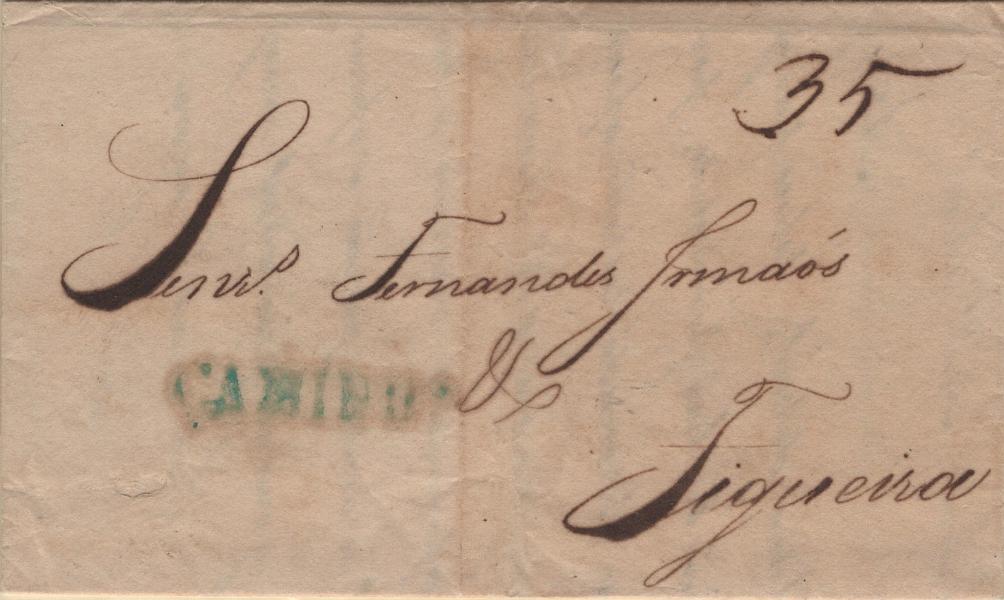 35
Senrs. Fernandes Irmaós
&
Figueira